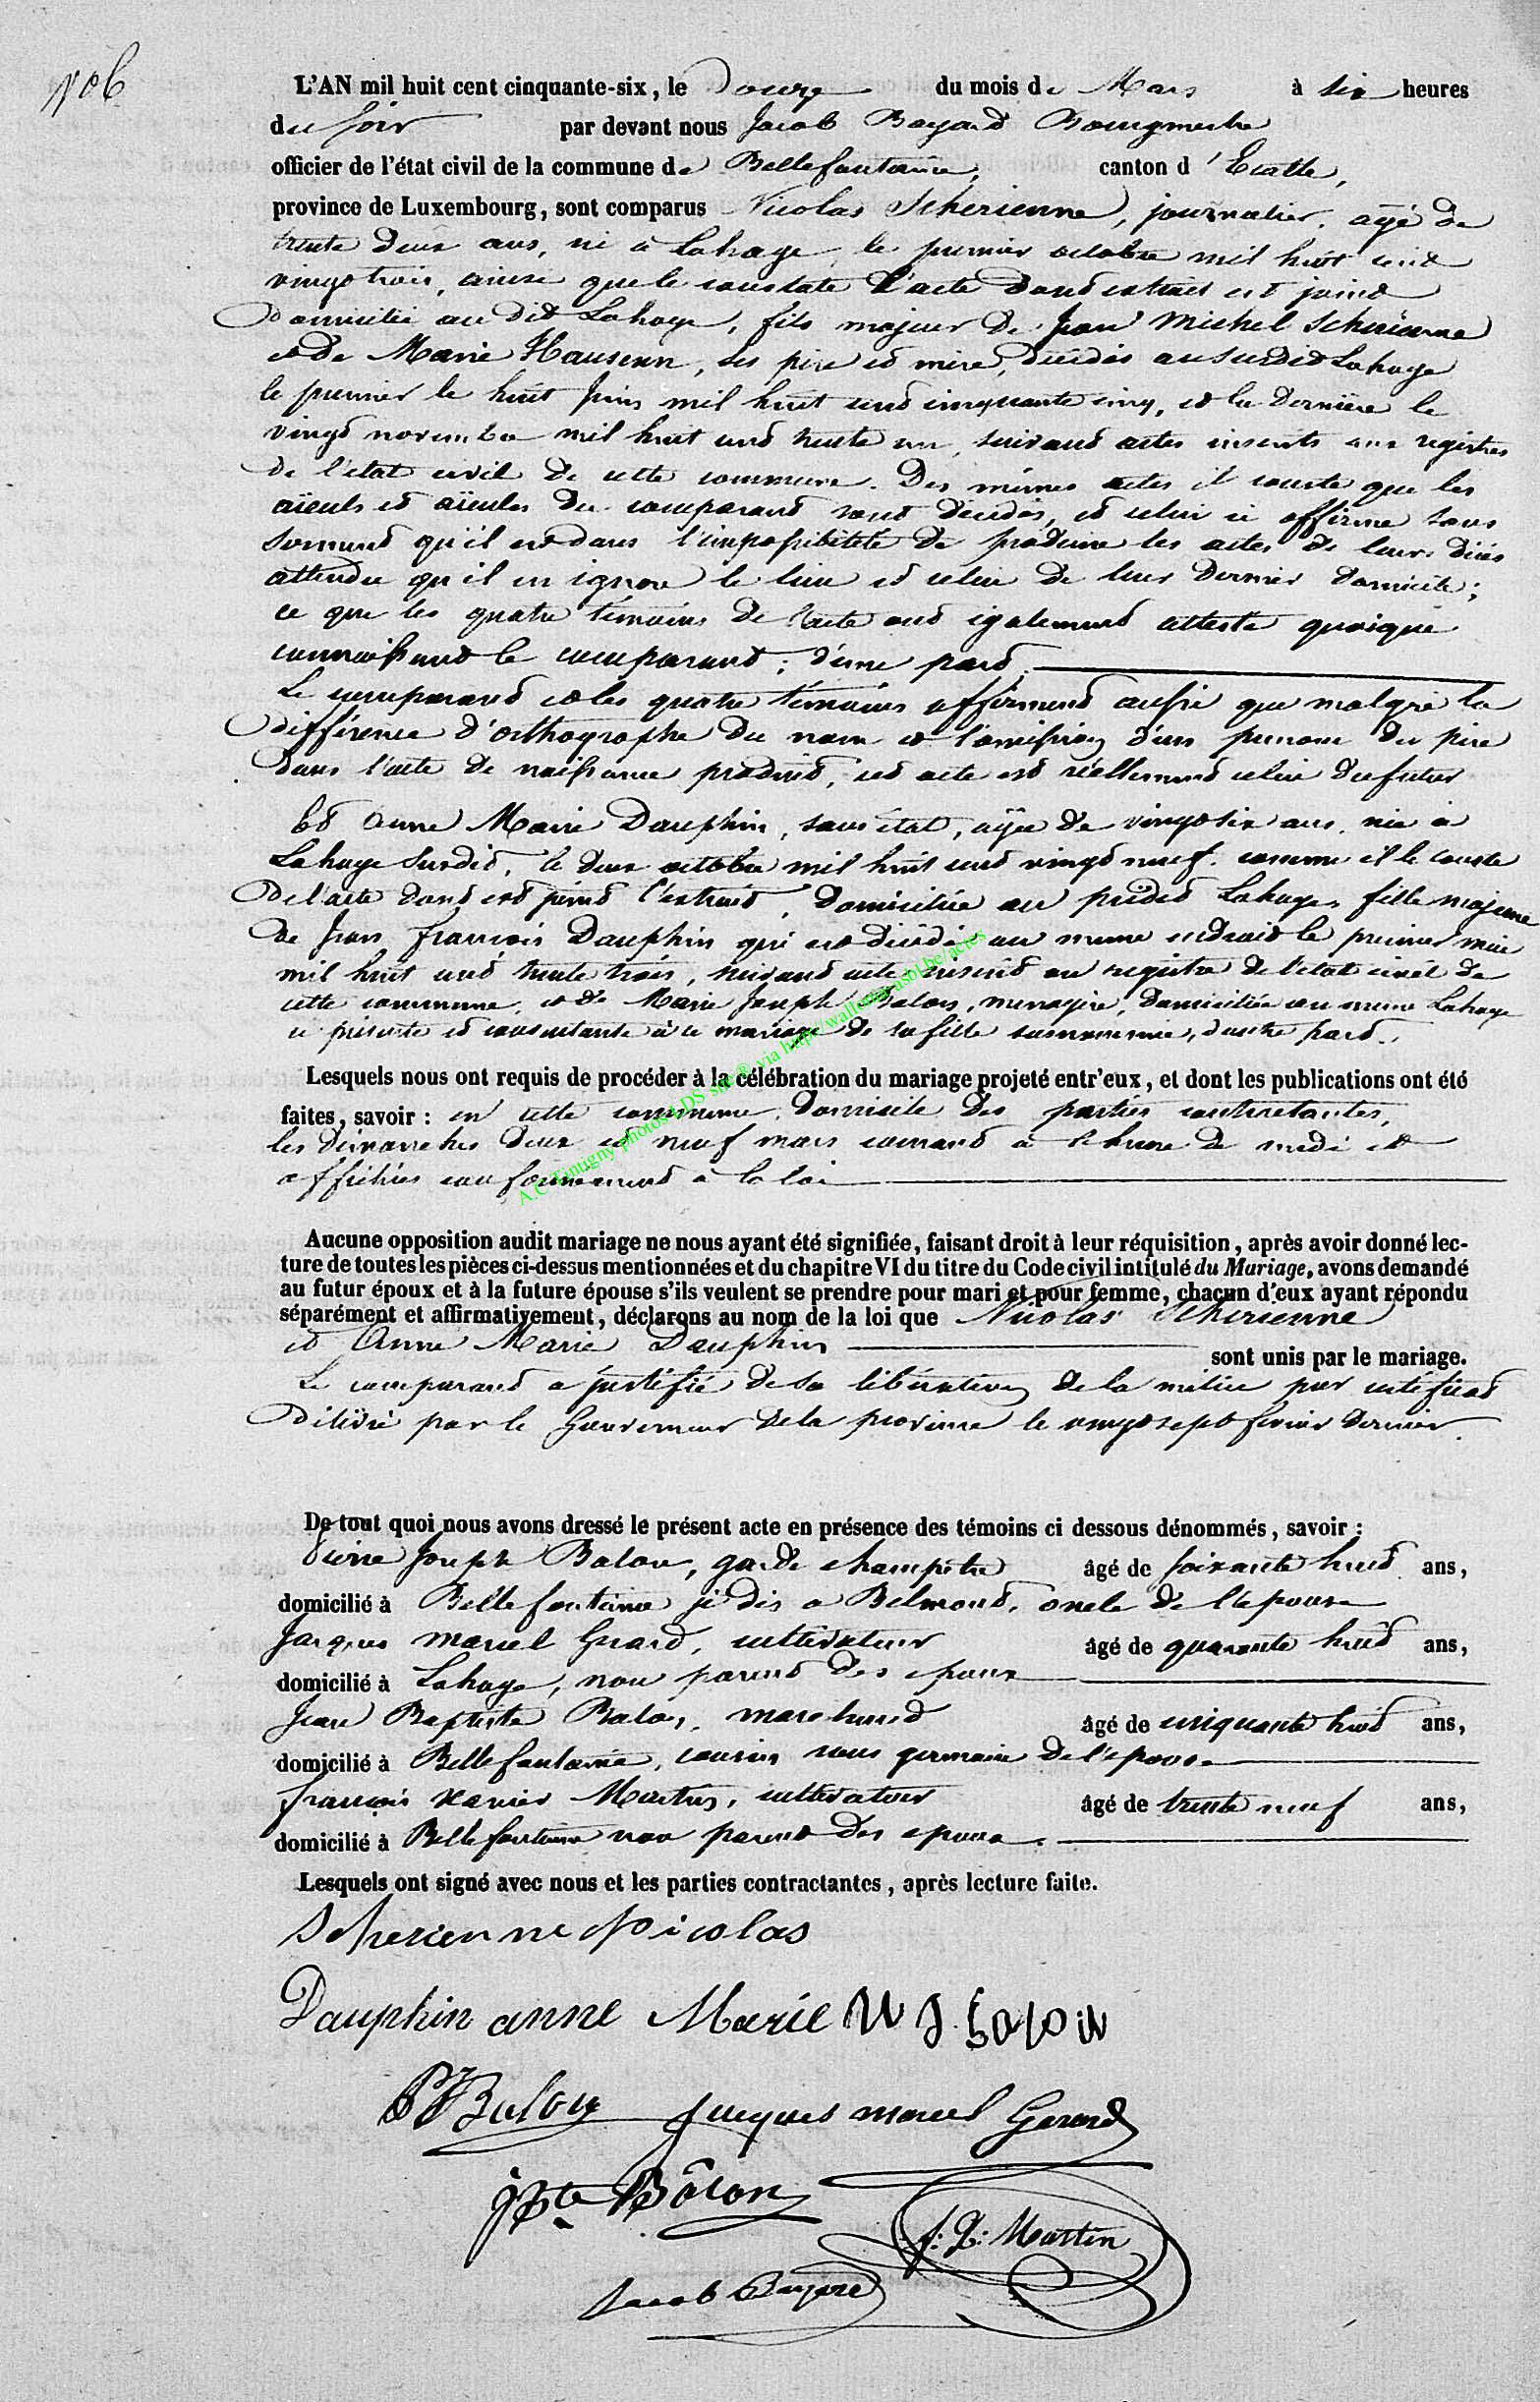 N° 6
L'AN mil huit cent cinquante-six, le Douze du mois de Mars à six heures
du soir par devant nous Jacob Bayard Bourgmestre
officier de l'état civil de la commune de Bellefontaine, canton d'Etalle,
province de Luxembourg, sont comparus Nicolas Scherienne, journalier, agé de
trente deux ans, né à Lahage, le premier octobre mil huit cent
vingt trois, ainsi que le constate l'acte dont extrait est joint
domicilié au dit Lahage, fils majeur de Jean Michel Scherienne
et de Marie Hausenn, ses père et mère, décédés au susdit Lahage
le premier le huit juin mil huit cent cinquante cinq, et la dernière le
vingt novembre mil huit cent trente un, suivant actes inscrits aux registres
de l'état civil de cette commune. Des mêmes actes il conste que les
aïeuls et aïeules du comparant sont décédés, et celui ci affirme sous
serment qu'il est dans l'impossibilité de produire les actes de leurs décès
attendu qu'il en ignore le lieu et celui de leur dernier domicile;
ce que les quatre témoins de l'acte ont également attesté quoique
connaissant le comparant; d'une part.
Le comparant et les quatre témoins affirment aussi que malgré la
différence d'orthographe du nom et l'omission d'un prenom du père
dans l'acte de naissance produit, cet acte est réellement celui du futur
Et Anne Marie Dauphin, sans état, agée de vingt six ans, née à
Lahage susdit, le deux octobre mil huit cent vingt neuf, comme il le conste
de l'acte dont est joint l'extrait, domiciliée au prédit Lahage, fille majeure
de Jean François Dauphin qui est décédé au meme endroit le premier mai
mil huit cent trente trois, suivant acte inscrit au registre de l'etat civil de
cette commune, et de Marie Joseph Balon, menagère, domiciliée au meme Lahage
ci présente et consentante à ce mariage de sa fille susnommée, d'autre part.
Lesquels nous ont requis de procéder à la célébration du mariage projeté entr'eux, et dont les publications ont été
faites, savoir : en cette commune, domicile des parties contractantes,
les dimanches deux et neuf mars courant à l'heure de midi et
affichées conformement à la loi
Aucune opposition audit mariage ne nous ayant été signifiée, faisant droit à leur réquisition, après avoir donné lec-
ture de toutes les pièces ci-dessus mentionnées et du chapitre VI du titre du Code civil intitulé du Mariage, avons demandé
au futur époux et à la future épouse s'ils veulent se prendre pour mari et pour femme, chacun d'eux ayant répondu
séparément et affirmativement, déclarons au nom de la loi que Nicolas Scherienne
et Anne Marie Dauphin sont unis par le mariage.
Le comparant a justifié de sa libération de la milice par certificat
délivré par le Gouverneur de la province le vingt sept fevrier dernier.
De tout quoi nous avons dressé le présent acte en présence des témoins ci dessous dénommés, savoir :
Pierre Joseph Balon, garde champêtre âgé de soixante huit ans,
domicilié à Bellefontaine je dis a Belmont, oncle de l'épouse
Jacques Marcel Gerard, cultivateur âgé de quarante huit ans,
domicilié à Lahage, non parent des epoux
Jean Baptiste Balon, marchand âgé de cinquante huit ans,
domicilié à Bellefontaine, cousin sous germain de l'epouse
François Xavier Martin, cultivateur âgé de trente neuf ans,
domicilié à Bellefontaine non parent des epoux.
Lesquels ont signé avec nous et les parties contractantes, après lecture faite.
Scherienne Nicolas
Dauphin anne Marie M J balon
PJBalon Jacques marcel Gerard
jbte Bâlon
f: X: Martin
Jacob Bayard
A.C Tinugny photos LDS site @ via http://wallonia-asbl.be/actes